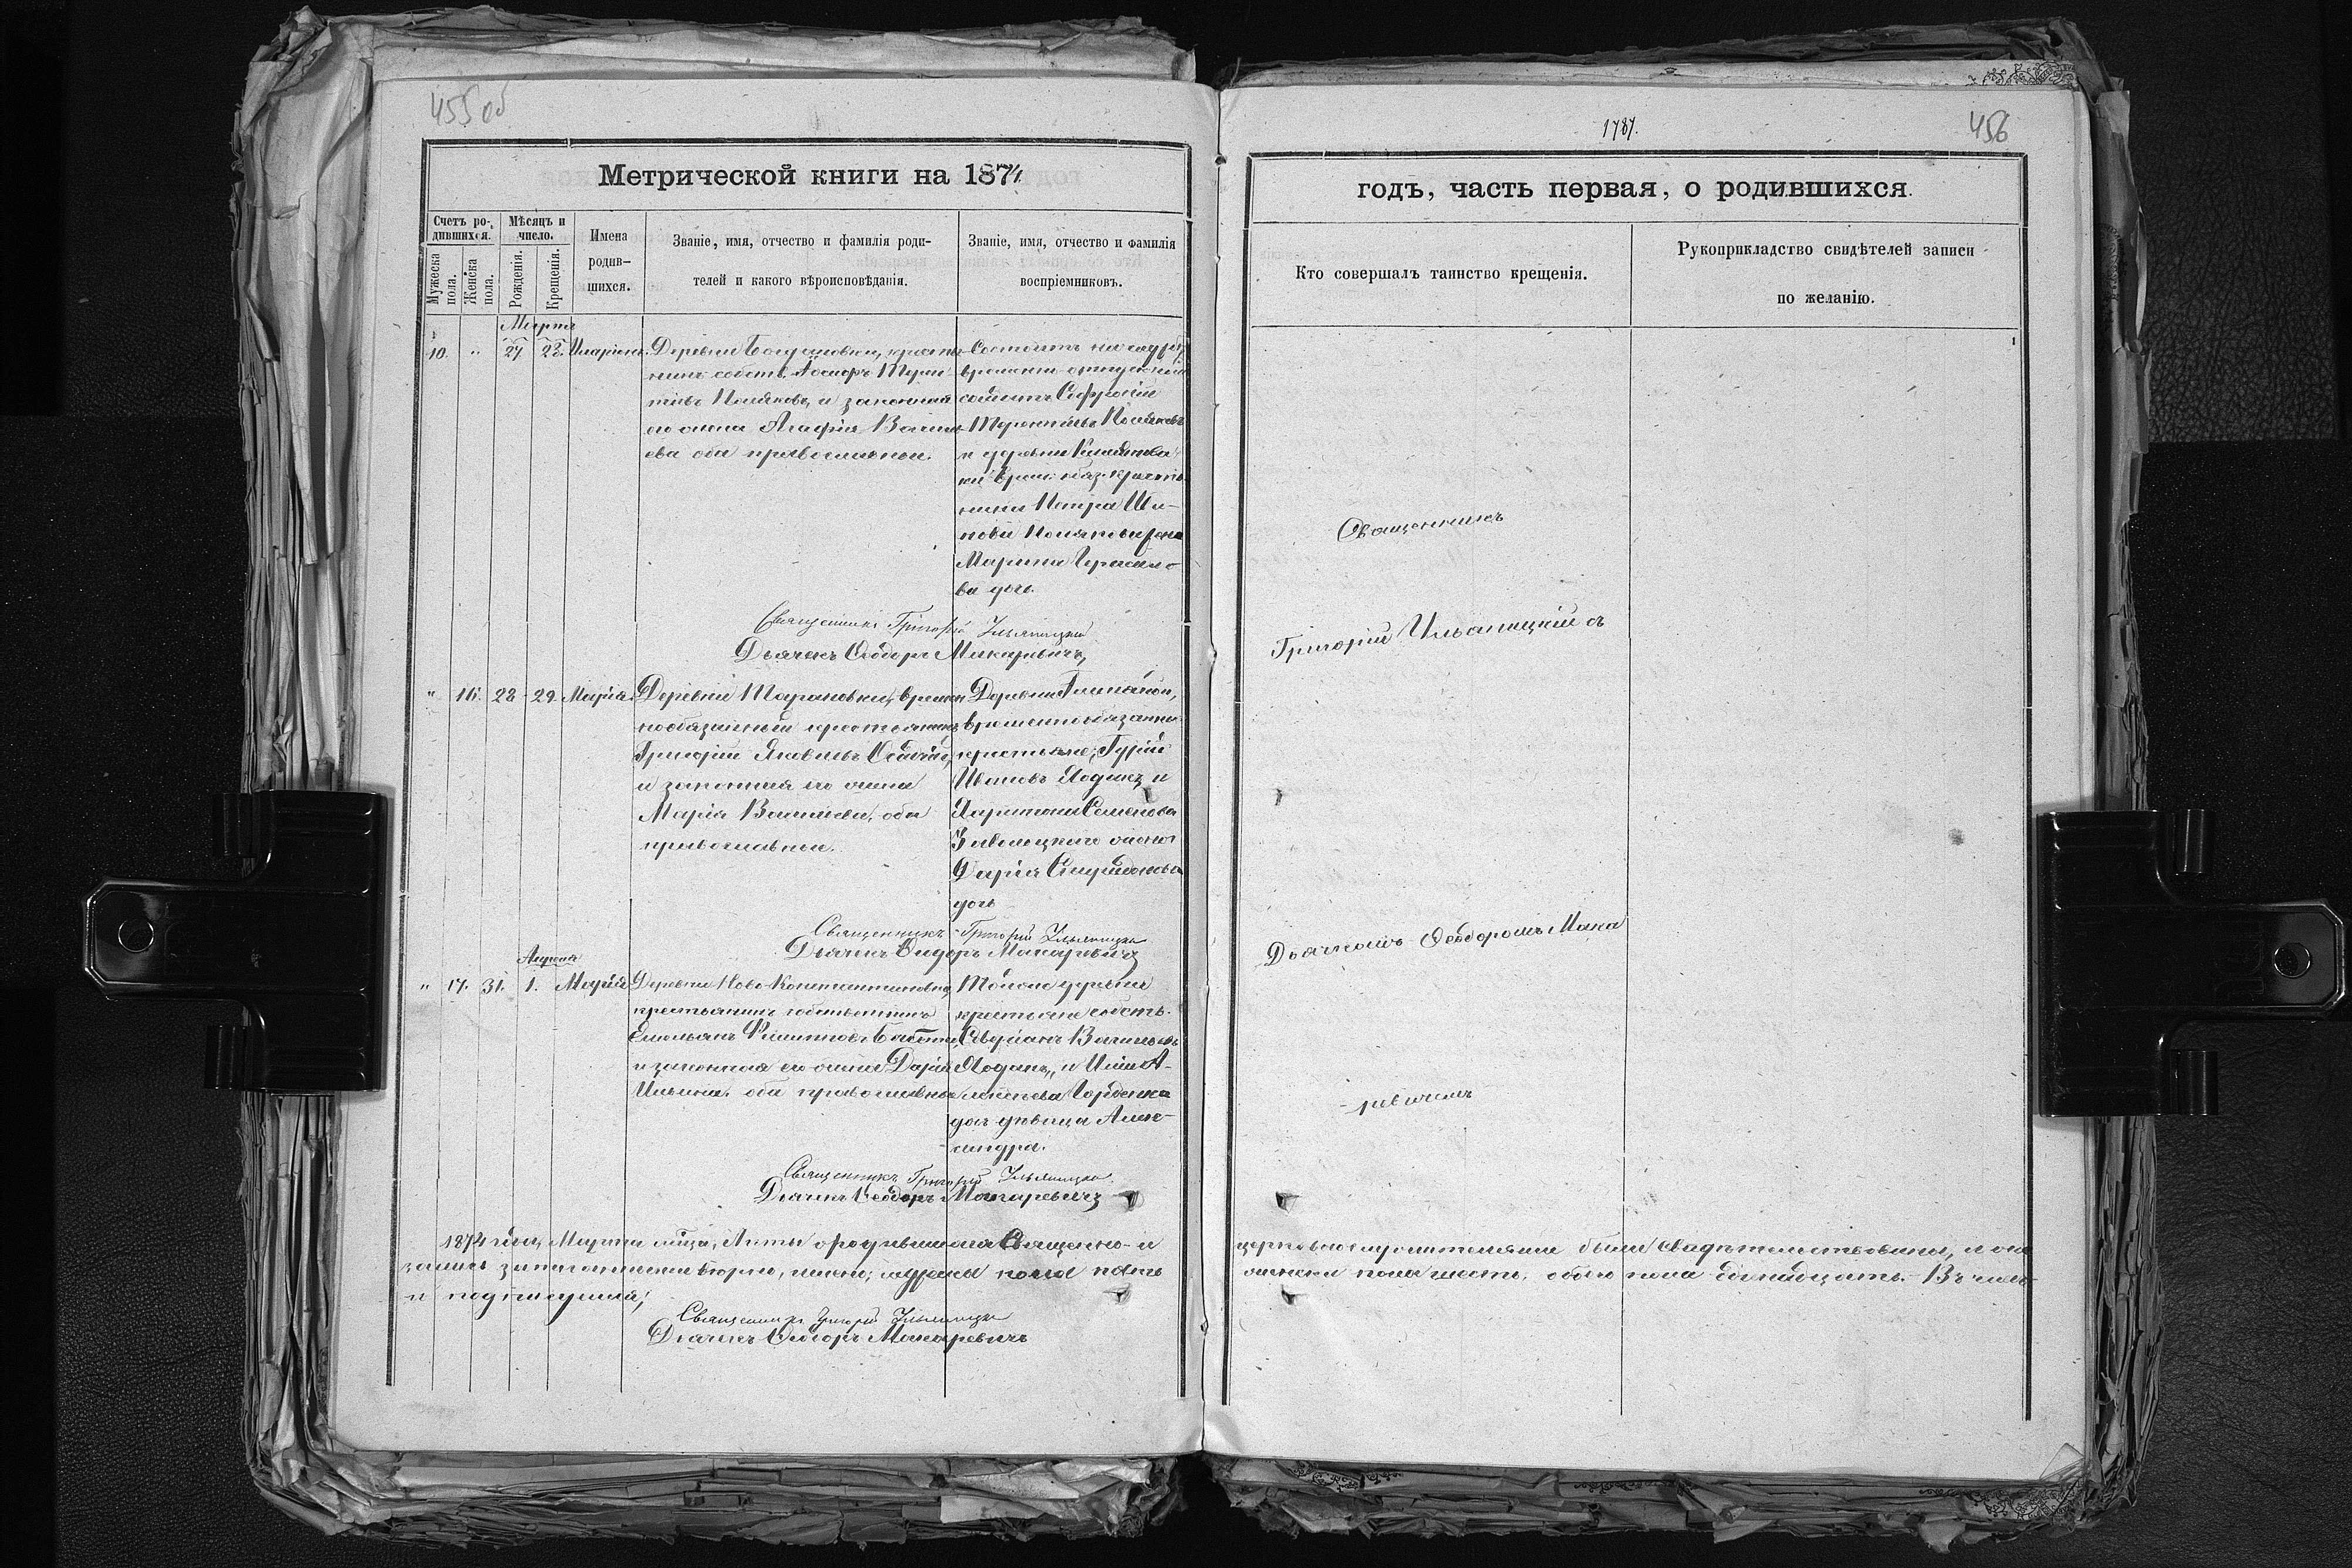 455 об
Метрической книги на 1874
Счетъ ро-
дившихся.
Мѣсяцъ и
число.
Мужеска
пола.
Женска
пола.
Рожденія.
Крещенія.
Имена
родив-
шихся.
Званіе, имя, отчество и фамилія роди-
телей и какого вѣроисповѣданія.
Званіе, имя, отчество и фамилія
воспріемниковъ.
Марта
10. " 27 28.
Деревни крестья-
нинъ собств. Іосифъ
Поляковъ, и законная
его жена Агафія Василь-
ева оба православные.
временно
Софроній
Терентіевъ Поляковъ
и деревни
ки врем. обяз. крестья-
нина Петра
Полякова жена
Марина
ва дочь.
Священникъ Григорій Ильяницкій
Дьячекъ Ѳеодоръ Макаревичъ
" 16. 28 29. Марія.
Деревни Тарановки, времен-
нообязанный крестьянинъ
Григорій Яковлевъ
и законная его жена
Марія Васильева, оба
православные.
Деревни
временнообязанные
крестьяне; Гурій
Ивановъ Ходакъ, и
Харитона Семенова
Заволоцкаго
Дарія Спиридонова
дочь
Священникъ Григорій Ильяницкій
Дьячекъ Ѳеодоръ Макаревичъ
Апреля
" 17. 31. 1. Марія
Деревни Ново-Константиновки,
крестьянинъ собственникъ
Емельянъ Филипповъ
и законная его жена Дарія
Ильина, оба православные
Тойже деревни
крестьяне собств.
Севиріанъ Васильевъ
Ходакъ, и Иліи А-
лексѣева Гордѣенка
дочь дѣвица Алек-
сандра.
Священникъ Григорій Ильяницкій
Дьячекъ Ѳеодоръ Макаревичъ
1874 года, Марта м-ца, Акты о родившихся Священно- и
записаны вѣрно, имянно; мужеска пола пять
и подписуемся;
Священникъ Григорій Ильяницкій
Дьячекъ Ѳеодоръ Макаревичъ
1787.
456
годъ, часть первая, о родившихся.
Кто совершалъ таинство крещенія.
Рукоприкладство свидѣтелей записи
по желанію.
Священникъ
Григорій Ильяницкій съ
Дьячкомъ Ѳеодоромъ Мака
-ревичемъ
церковнослужителями были свидѣтельствованы, и
женска пола шесть, обоего пола Въ чемъ